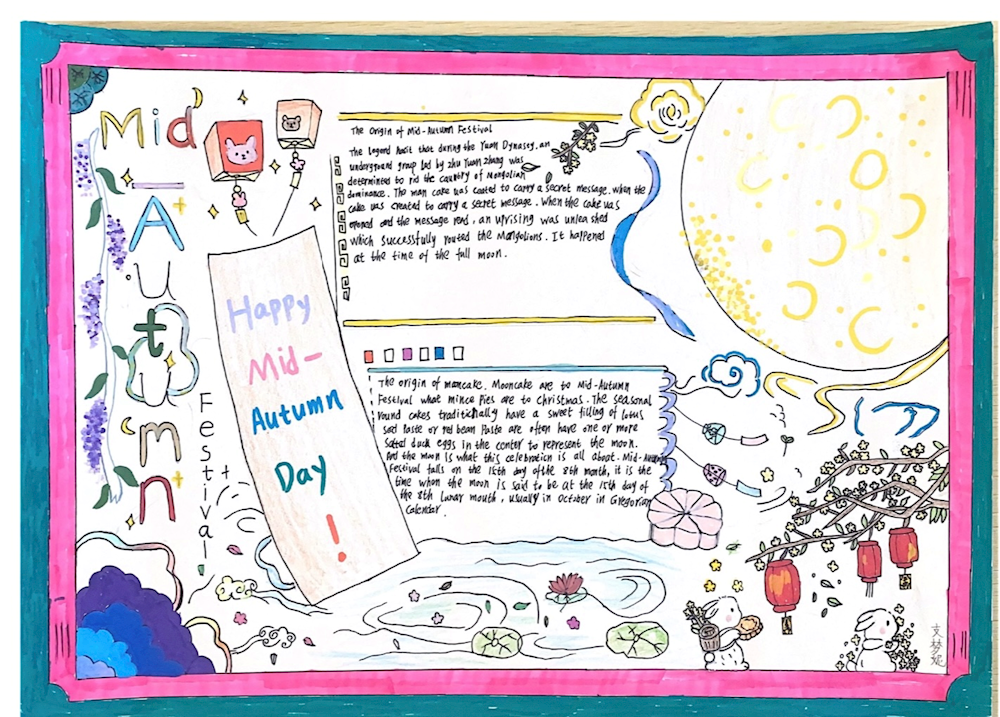 Mid
-Autumn
Festival
Happy
Mid-
Autumn
Day
!
The Origin of Mid-Autumn Festival
The legend hasit that during the Yuan Dynasey, an
underground group led by zhu Yuan zhang was
determintes to rid the country of Mongolian
dominance. The man cake was coated to carry a secret message. when the
cake was created to carry a secret message. When the cake was
opened and the message read, an uprising was unleashed
which successfully routed the Mangolions. It happened
at the time of the full moon.
The origin of mancake. Mooncake are to Mid-Autumn
Festival what mince pies are to Christmas. The seasonal
round cakes traditichally have a sweet filling of lotus
sud paste or red bean Paste are often have one or more
salted duck eggs in the center to represent the moon.
And the moon is what this celebration is all about. Mid-Autumn
Festival falls on the 15th day of the 8th month, it is the
time when the moon is said to be at the 15th day of
the 8th Lunar mouth, usually in October in Gregorian
Calendar.
文梦妮